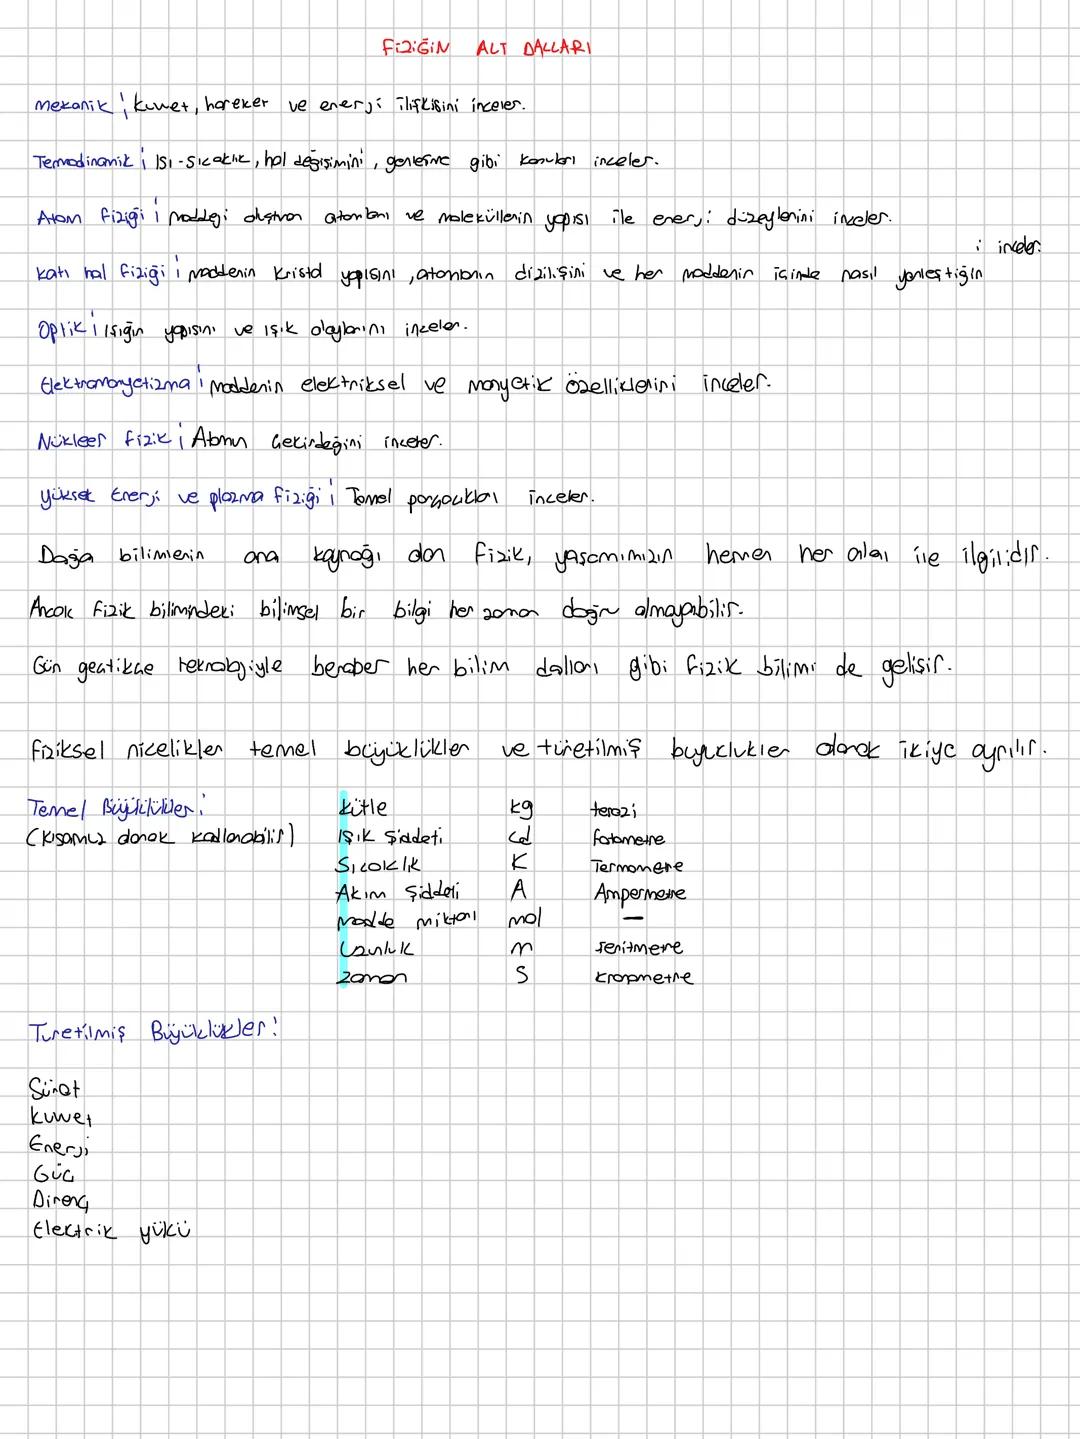 FİZİĞİN ALT DALLARI
Mekanik; kuvvet, hareket ve enerji ilişkisini inceler.
Termodinamik; ısı-sıcaklık, hal değişimini, genleşme gibi konuları inceler.
Atom fiziği; maddeyi oluşturan atomların ve moleküllerin yapısı ile enerji düzeylerini inceler.
Katı hal fiziği; maddenin kristal yapısını, atomların dizilişini ve her maddenin içinde nasıl yerleştiğini inceler.
Optik; ışığın yapısını ve ışık olaylarını inceler.
Elektromanyetizma; maddenin elektriksel ve manyetik özelliklerini inceler.
Nükleer fizik; Atomun çekirdeğini inceler.
Yüksek Enerji ve plazma fiziği; Temel parçacıkları inceler.
Doğa bilimlerin ana kaynağı olan fizik, yaşamımızın hemen her alanı ile ilgilidir.
Ancak fizik bilimindeki bilimsel bir bilgi her zaman doğru olmayabilir.
Gün geçtikçe teknolojiyle beraber her bilim dalları gibi fizik bilimi de gelişir.
Fiziksel nicelikler temel büyüklükler ve türetilmiş büyüklükler olarak ikiye ayrılır.
Temel Büyüklükler: Kütle kg terazi
(KISAMUZ olarak kodlanabilir) Işık Şiddeti cd fotometre
Sıcaklık K Termometre
Akım Şiddeti A Ampermetre
Madde miktarı mol —
Uzunluk m Şeritmetre
Zaman s Kronometre
Türetilmiş Büyüklükler:
Sürat
Kuvvet
Enerji
Güç
Direnç
Elektrik yükü